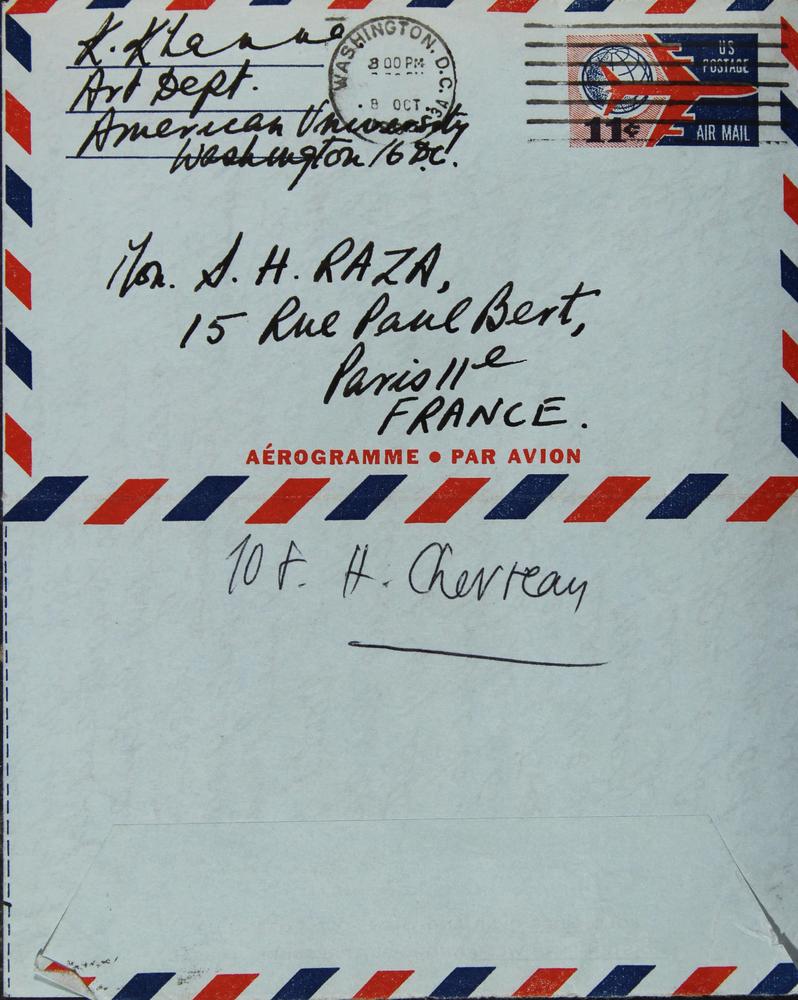 K. Khanna
Art Dept.
American University
Washington 16 D.C.
WASHINGTON, D.C.
8 00 PM
8 OCT
US
POSTAGE
11¢
AIR MAIL
Mon. S. H. RAZA,
15 Rue Paul Bert,
Paris 11e
FRANCE.
AÉROGRAMME • PAR AVION
H. Chevreau